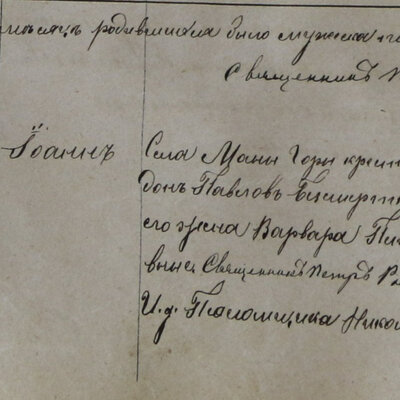 мѣсяцъ родившихся было мужеска
Священникъ
Іоаннъ
Села Маны Горы крест
донъ Павловъ
его жена Варвара
вы ие Священникъ Петръ
И. д. Псаломщика Никол